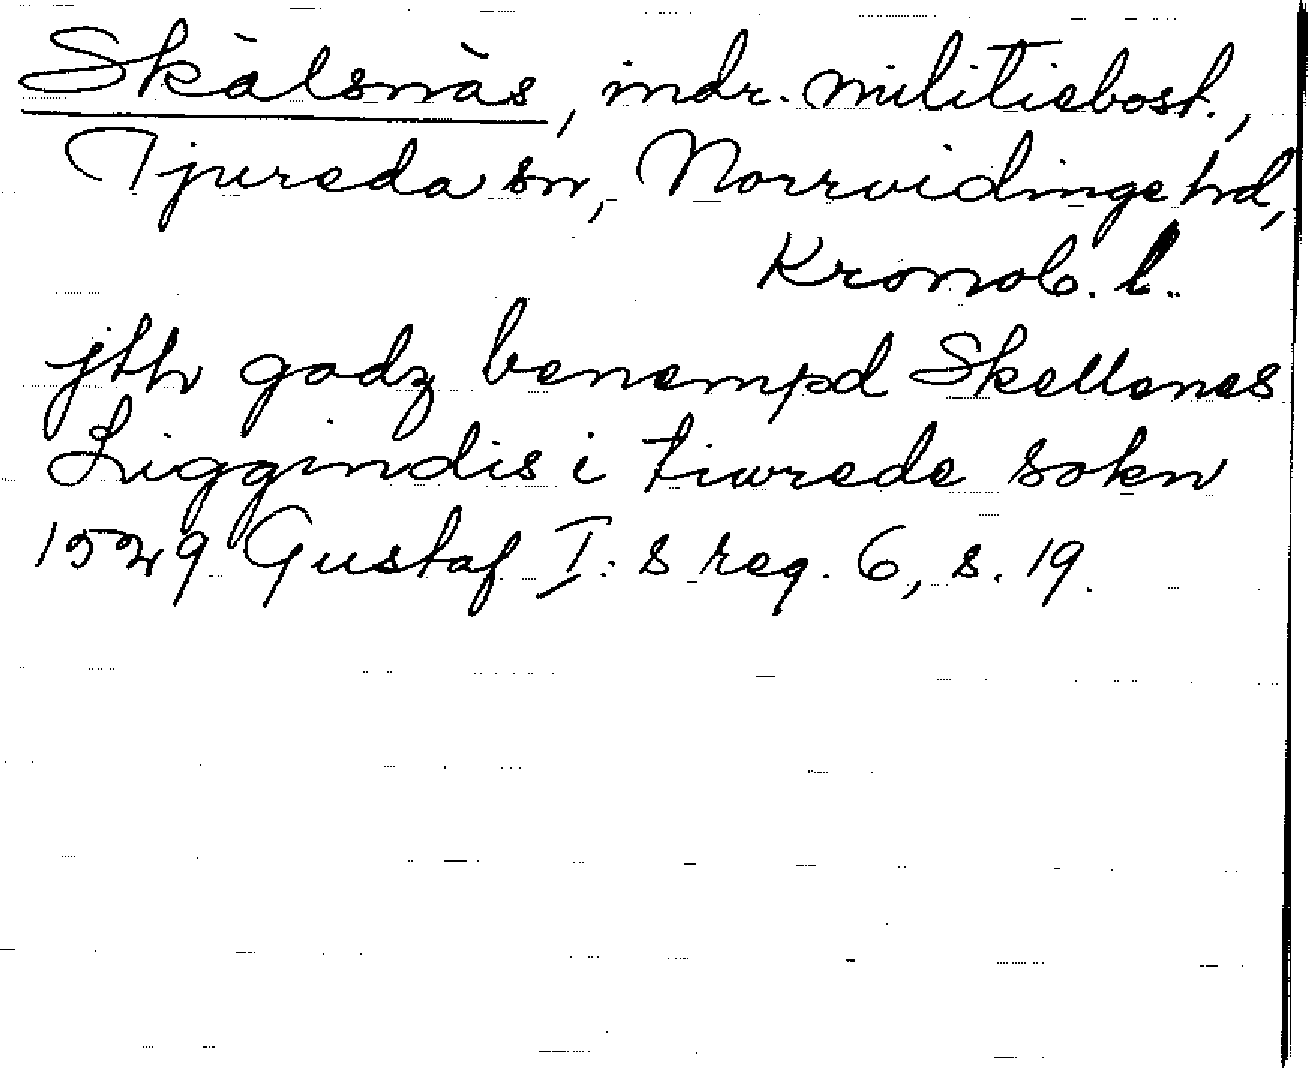 Skälsnäs, indr. militiebost.,
Tjureda sn, Norrvidinge hd,
Kronob. l.
jtth godz benempd Skellenes
Liggindis i tiwrede sokn
1529 Gustaf I:s reg. 6, s. 19.